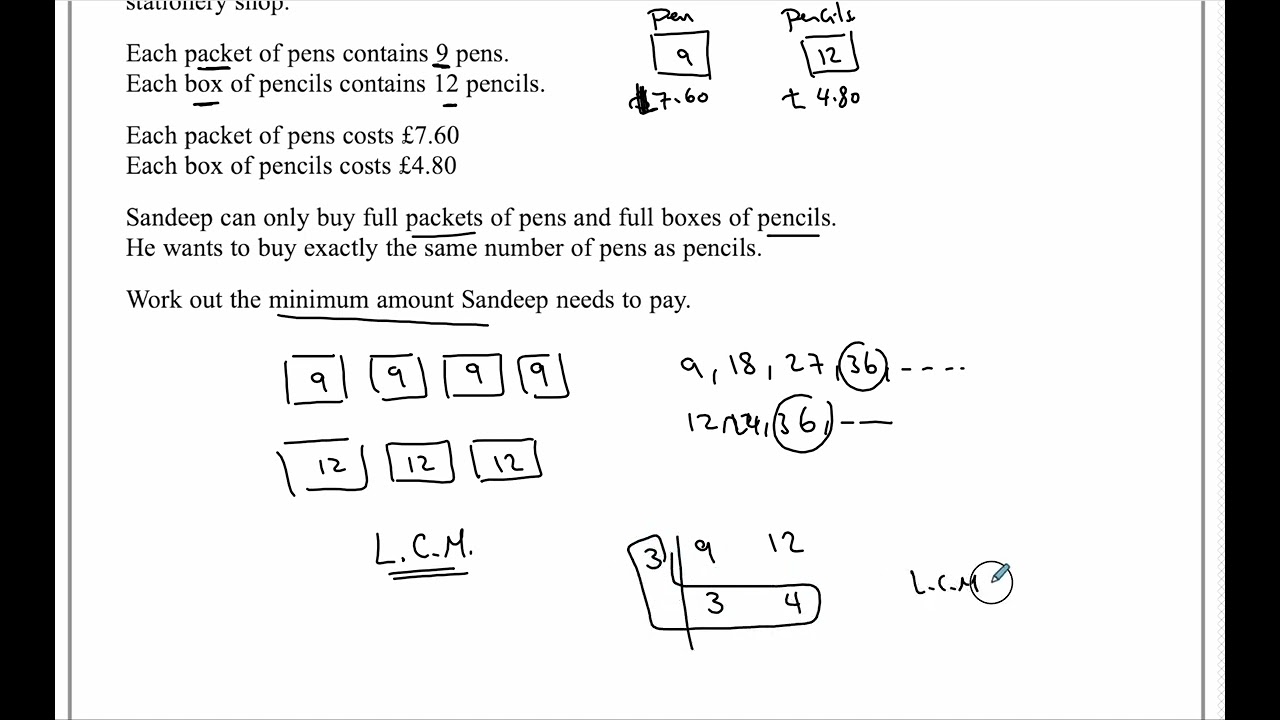 stationery shop.
pen pencils
Each packet of pens contains 9 pens.
9 12
Each box of pencils contains 12 pencils.
£7.60 £4.80
Each packet of pens costs £7.60
Each box of pencils costs £4.80
Sandeep can only buy full packets of pens and full boxes of pencils.
He wants to buy exactly the same number of pens as pencils.
Work out the minimum amount Sandeep needs to pay.
9 9 9 9
9, 18, 27, 36, ----
12, 24, 36, ---
12 12 12
L.C.M.
3 9 12
3 4
L.C.M